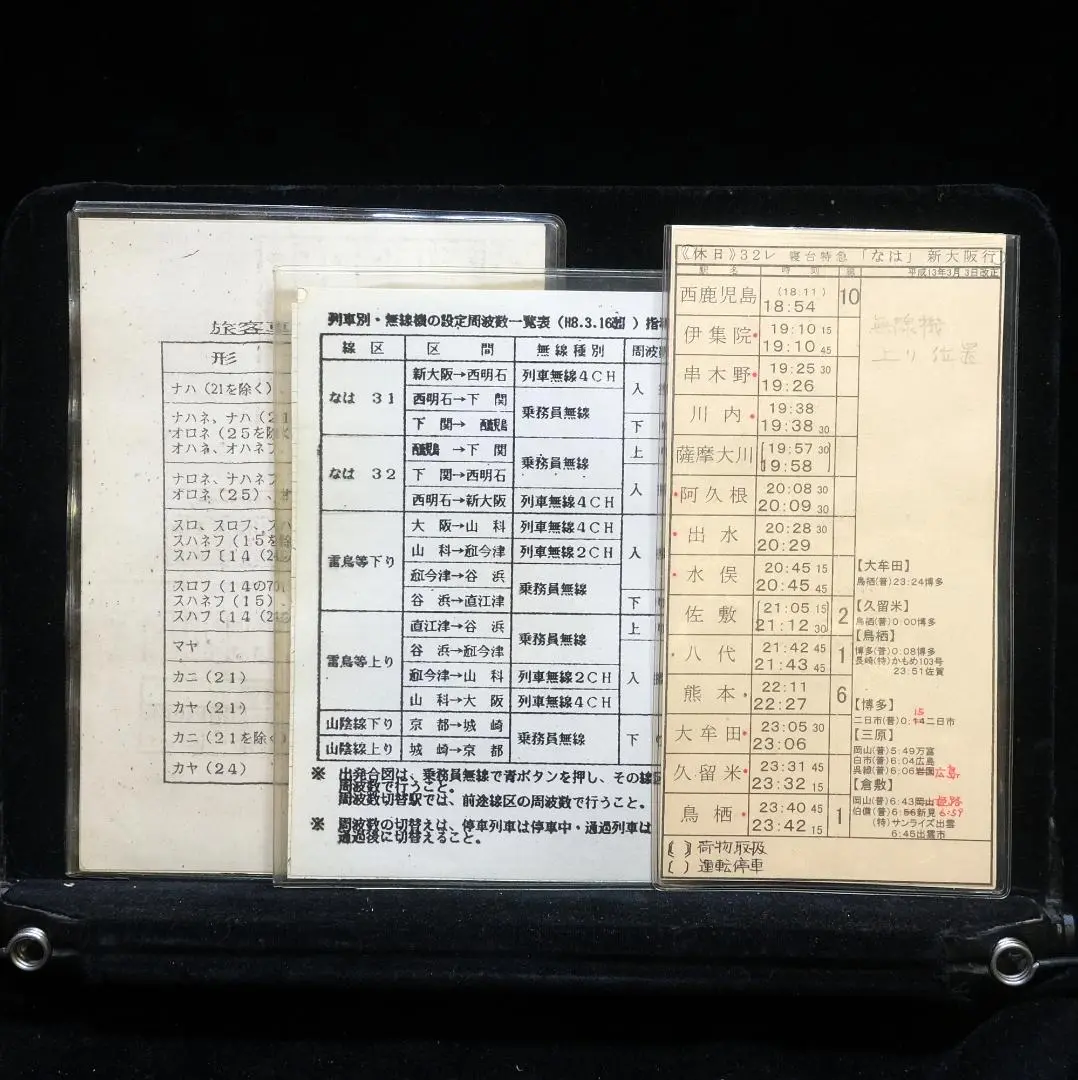 旅客車
形
ナハ(21を除く)、
ナハネ、ナハ(21
オロネ(25を除く
オハネ、オハネフ
ナロネ、ナハネフ
オロネ(25)、オ
スロ、スロフ、スハ
スハネフ(15を除
スハフ[14(24
スロフ(14の701
スハネフ(15)、
スハフ[14(24
マヤ
カニ(21)
カヤ(21)
カニ(21を除く)
カヤ(24)
列車別・無線機の設定周波数一覧表(H8.3.16改)指
線 区 区 間 無線種別 周波
なは 31
新大阪→西明石 列車無線4CH 入
西明石→下 関 乗務員無線
下 関→ 下
なは 32
→下 関 乗務員無線 上
下 関→西明石 入
西明石→新大阪 列車無線4CH
雷鳥等下り
大 阪→山 科 列車無線4CH 入
山 科→近今津 列車無線2CH
近今津→谷 浜 乗務員無線
谷 浜→直江津 下
雷鳥等上り
直江津→谷 浜 乗務員無線 上
谷 浜→近今津 入
近今津→山 科 列車無線2CH
山 科→大 阪 列車無線4CH
山陰線下り 京 都→城 崎 乗務員無線 下
山陰線上り 城 崎→京 都
※ 出発合図は、乗務員無線で青ボタンを押し、その線区
周波数で行うこと。
周波数切替駅では、前途線区の周波数で行うこと。
※ 周波数の切替えは、停車列車は停車中・通過列車は
通過後に切替えること。
《休日》32レ 寝台特急「なは」新大阪行
駅 名 時 刻 線 平成13年3月 3日改正
西鹿児島 (18.11) 18:54 10
伊集院 19:10 15 19:10 45
串木野 19:25 30 19:26
川内 19:38 19:38 30
薩摩大川 [19:57 30 19:58]
阿久根 20:08 30 20:09 30
出水 20:28 30 20:29
水俣 20:45 15 20:45 45
佐敷 [21:05 15 21:12 30] 2
八代 21:42 45 21:43 45 1
熊本 22:11 22:27 6
大牟田 23:05 30 23:06
久留米 23:31 45 23:32 15
鳥栖 23:40 45 23:42 15 1
【 】荷物取扱
( )運転停車
無線機
上り 位置
【大牟田】
鳥栖(普)23:24博多
【久留米】
鳥栖(普)0:00博多
【鳥栖】
博多(普)0:08博多
長崎(特)かもめ103号
23:51佐賀
【博多】
15
二日市(普)0:14二日市
【三原】
岡山(普)5:49万富
白市(普)6:04広島
呉線(普)6:06岩国 広島
【倉敷】
岡山(普)6:43岡山 姫路
伯備(普)6:56新見 6:59
(特)サンライズ出雲
6:45出雲市